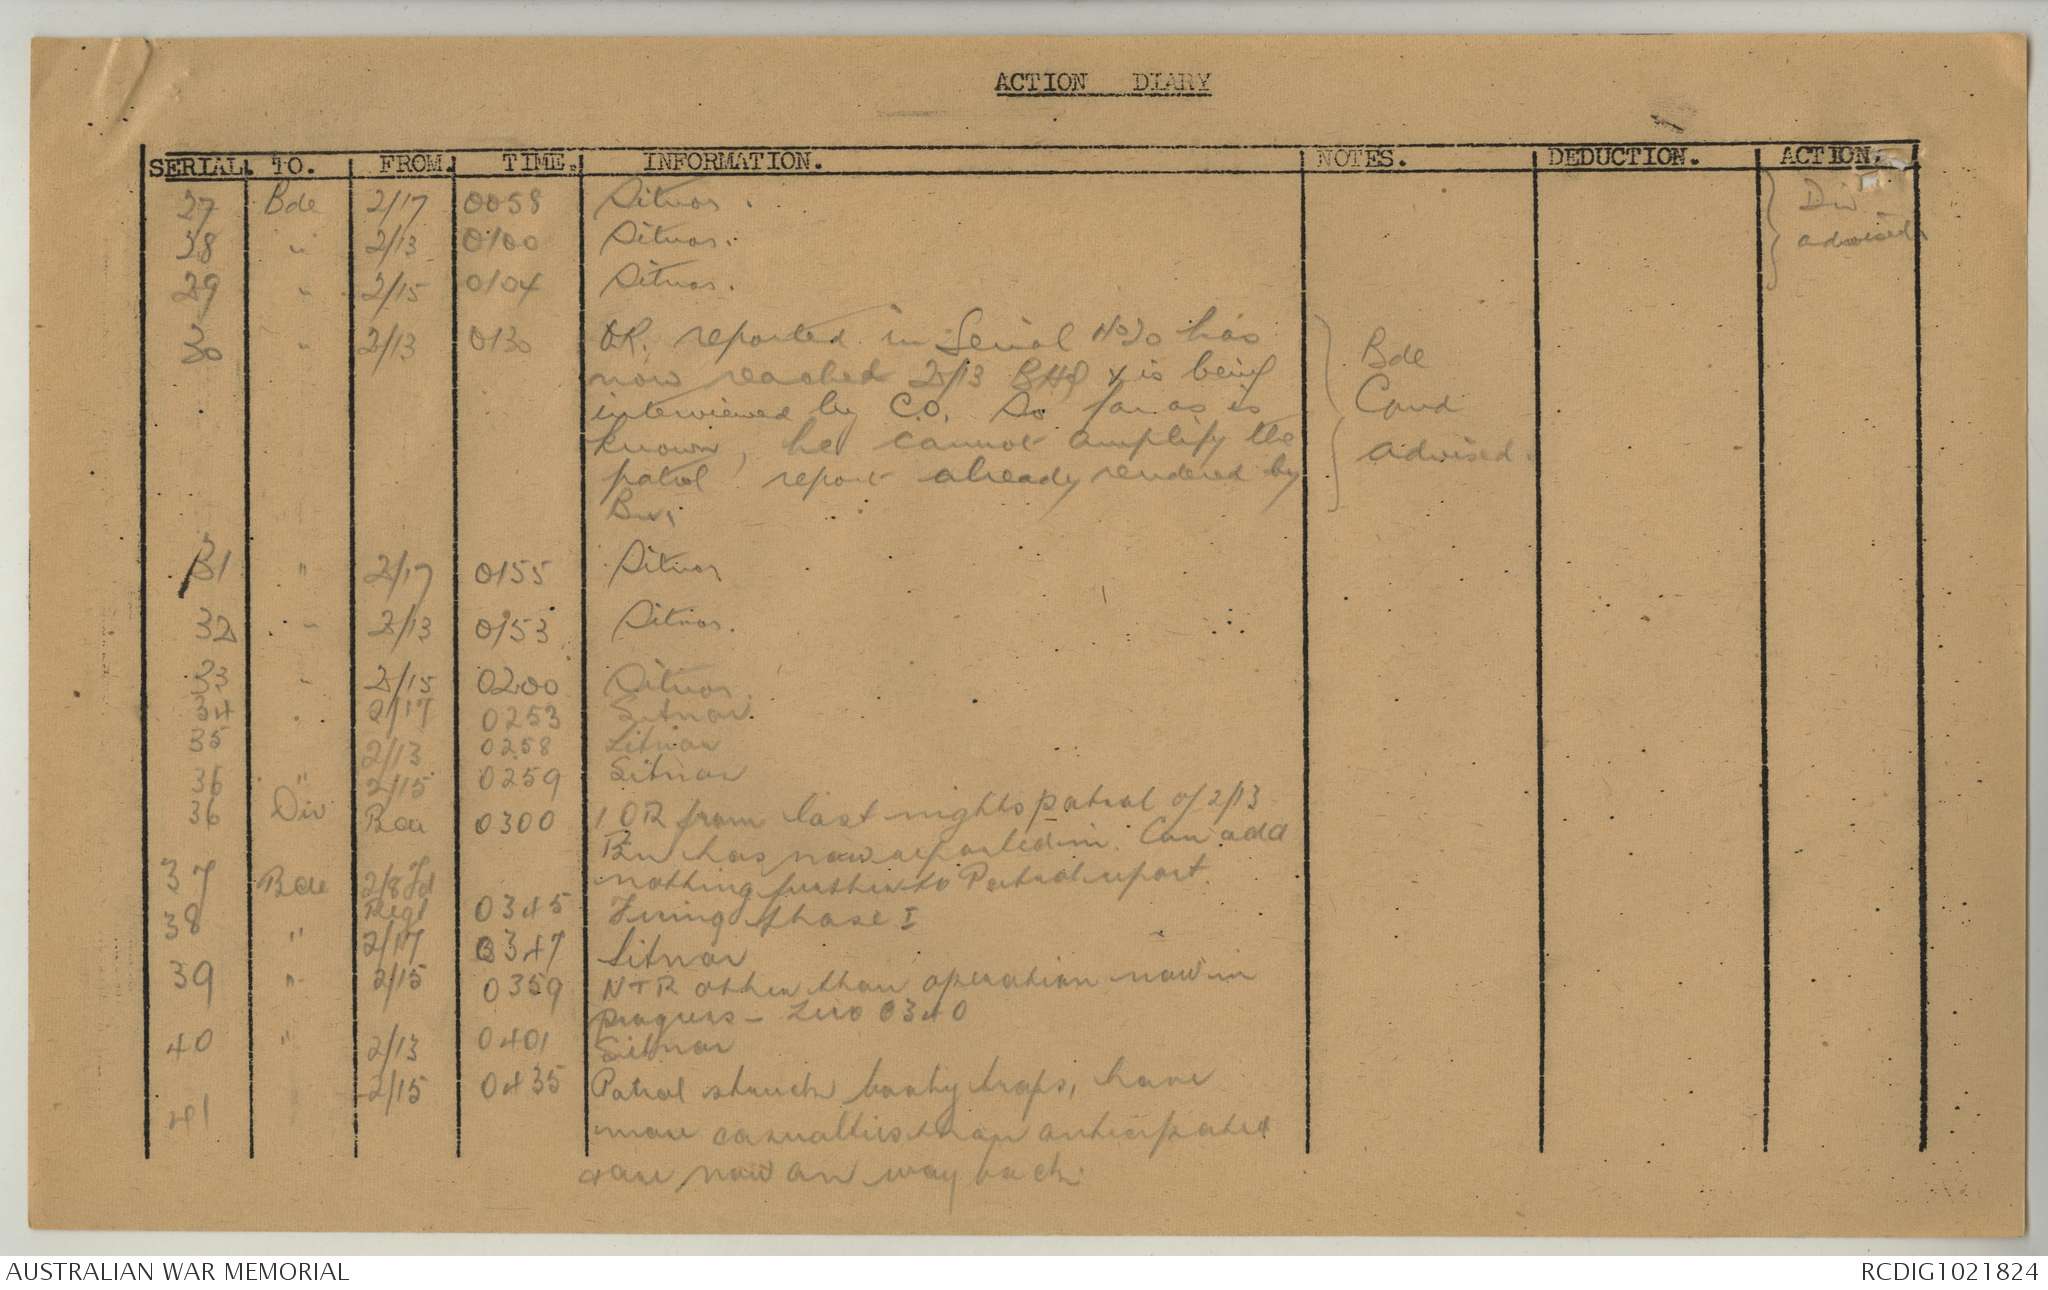 ACTION DIARY
SERIAL. TO. FROM. TIME. INFORMATION. NOTES. DEDUCTION. ACTION.
27 Bde 2/17 0058 Sitnor. Div
28 " 2/13 0100 Sitnor. advised.
29 " 2/15 0104 Sitnor.
30 " 2/13 0130 OR. reported in Serial No has
now reached 2/13 BHQ & is being Bde
interviewed by C.O. So far as is Comd
known, he cannot amplify the advised.
patrol report already rendered by
Bn.
31 " 2/17 0155 Sitnor
32 " 2/13 0153 Sitnor.
33 " 2/15 0200 Sitnor.
34 " 2/17 0253 Sitnor.
35 2/13 0258 Sitnor
36 " 2/15 0259 Sitnor
36 Div Bde 0300 1 OR from last nights patrol of 2/13
Bn has now reported in. Can add
nothing further to Patrol report.
37 Bde 2/8 Fd
Regt 0345 Firing phase I
38 " 2/17 0347 Sitnor
39 " 2/15 0359 NTR other than operation now in
progress - Zero 0340
40 " 2/13 0401 Sitnor
41 2/15 0435 Patrol struck booby traps, have
more casualties than anticipated
& are now on way back.
AUSTRALIAN WAR MEMORIAL RCDIG1021824